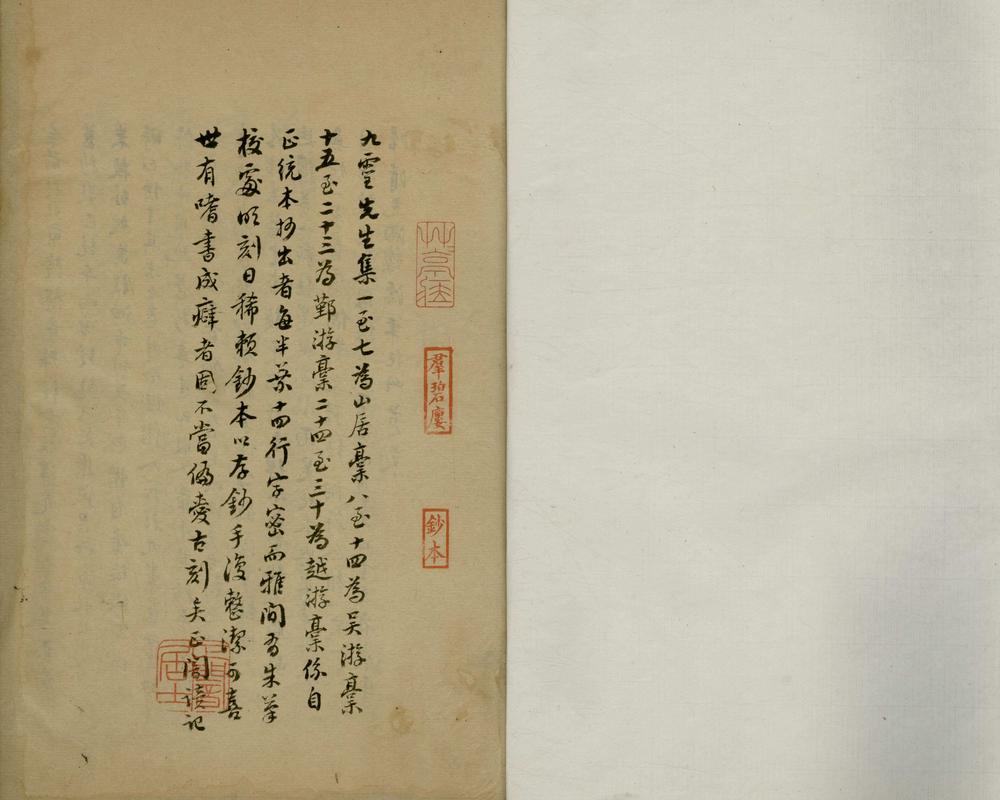 羣碧廔
鈔本
九霊先生集一至七為山居稾八至十四為吴游稾
十五至二十三為鄞游稾二十四至三十為越游稾係自
正统本抄出者每半葉十四行字密而雅间有朱筆
校處明刻日稀赖鈔本以存鈔手復整潔可喜
世有嗜書成癖者固不當偏愛古刻矣正闇讀記
居士